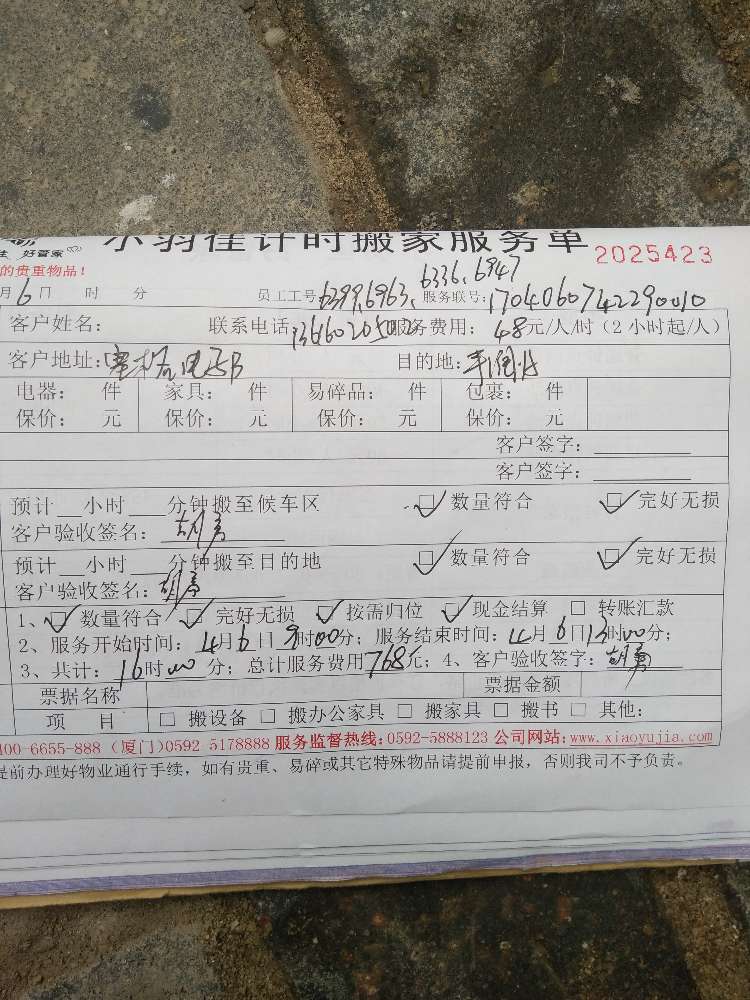 小羽佳计时搬家服务单 2025423
好管家
的贵重物品!
6336, 6947
月6日 时 分 员工工号:6399,6963, 服务联号:17040607422290010
客户姓名: 联系电话: 服务费用: 48元/人/时(2小时起/人)
客户地址: 目的地:
电器: 件 家具: 件 易碎品: 件 包裹: 件
保价: 元 保价: 元 保价: 元 保价: 元
客户签字:
客户签字:
预计 小时 分钟搬至候车区 数量符合 完好无损
客户验收签名: 胡勇
预计 小时 分钟搬至目的地 数量符合 完好无损
客户验收签名: 胡勇
1、 数量符合 完好无损 按需归位 现金结算 转账汇款
2、服务开始时间: 4月6日9时00分; 服务结束时间: 4月6日13时00分;
3、共计: 16时00分; 总计服务费用768元; 4、客户验收签字: 胡勇
票据名称 票据金额
项 目 搬设备 搬办公家具 搬家具 搬书 其他:
400-6655-888 (厦门)0592 5178888 服务监督热线:0592-5888123 公司网站:www.xiaoyujia.com
提前办理好物业通行手续,如有贵重、易碎或其它特殊物品请提前申报,否则我司不予负责。